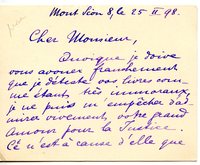 Mont Séon 8, le 25 II. 98.
Cher Monsieur,
Quoique je doive
vous avouer franchement
que je déteste vos livres com-
me étant très immoraux,
je ne puis m'empêcher d'ad-
mirer vivement, votre grand
Amour pour la Justice.
Et c'est à cause d'elle que